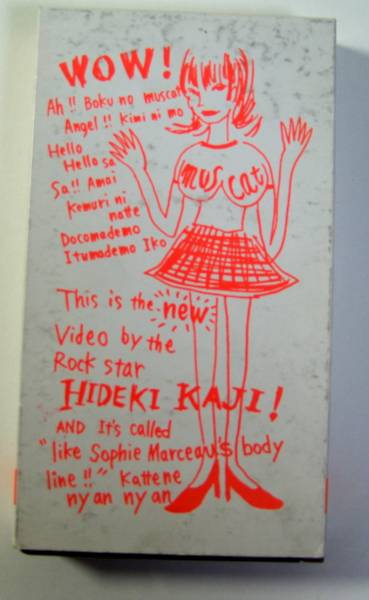 WOW!
Ah!! Boku no muscat
Angel!! Kimi ni mo
Hello
Hello sa
Sa!! Amai
Kemuri ni
natte
Docomademo
Itumademo Iko
muscat
This is the new
Video by the
Rock star
HIDEKI KAJI!
AND It's called
"like Sophie Marceau's body
line!!" Kattene
nyan nyan